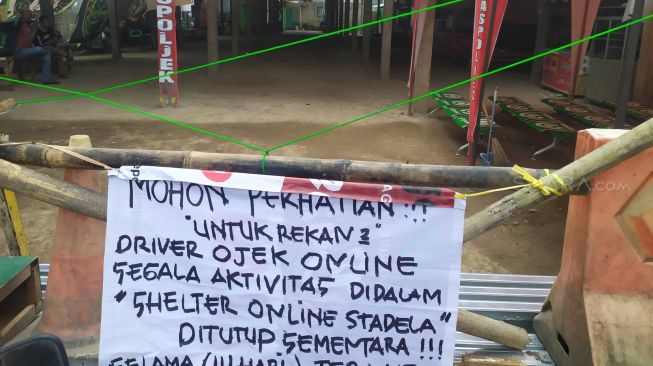 POLJEK
MOHON PERHATIAN !!!
"UNTUK REKAN 2
DRIVER OJEK ONLINE
SEGALA AKTIVITAS DIDALAM
"SHELTER ONLINE STADELA"
DITUTUP SEMENTARA !!!